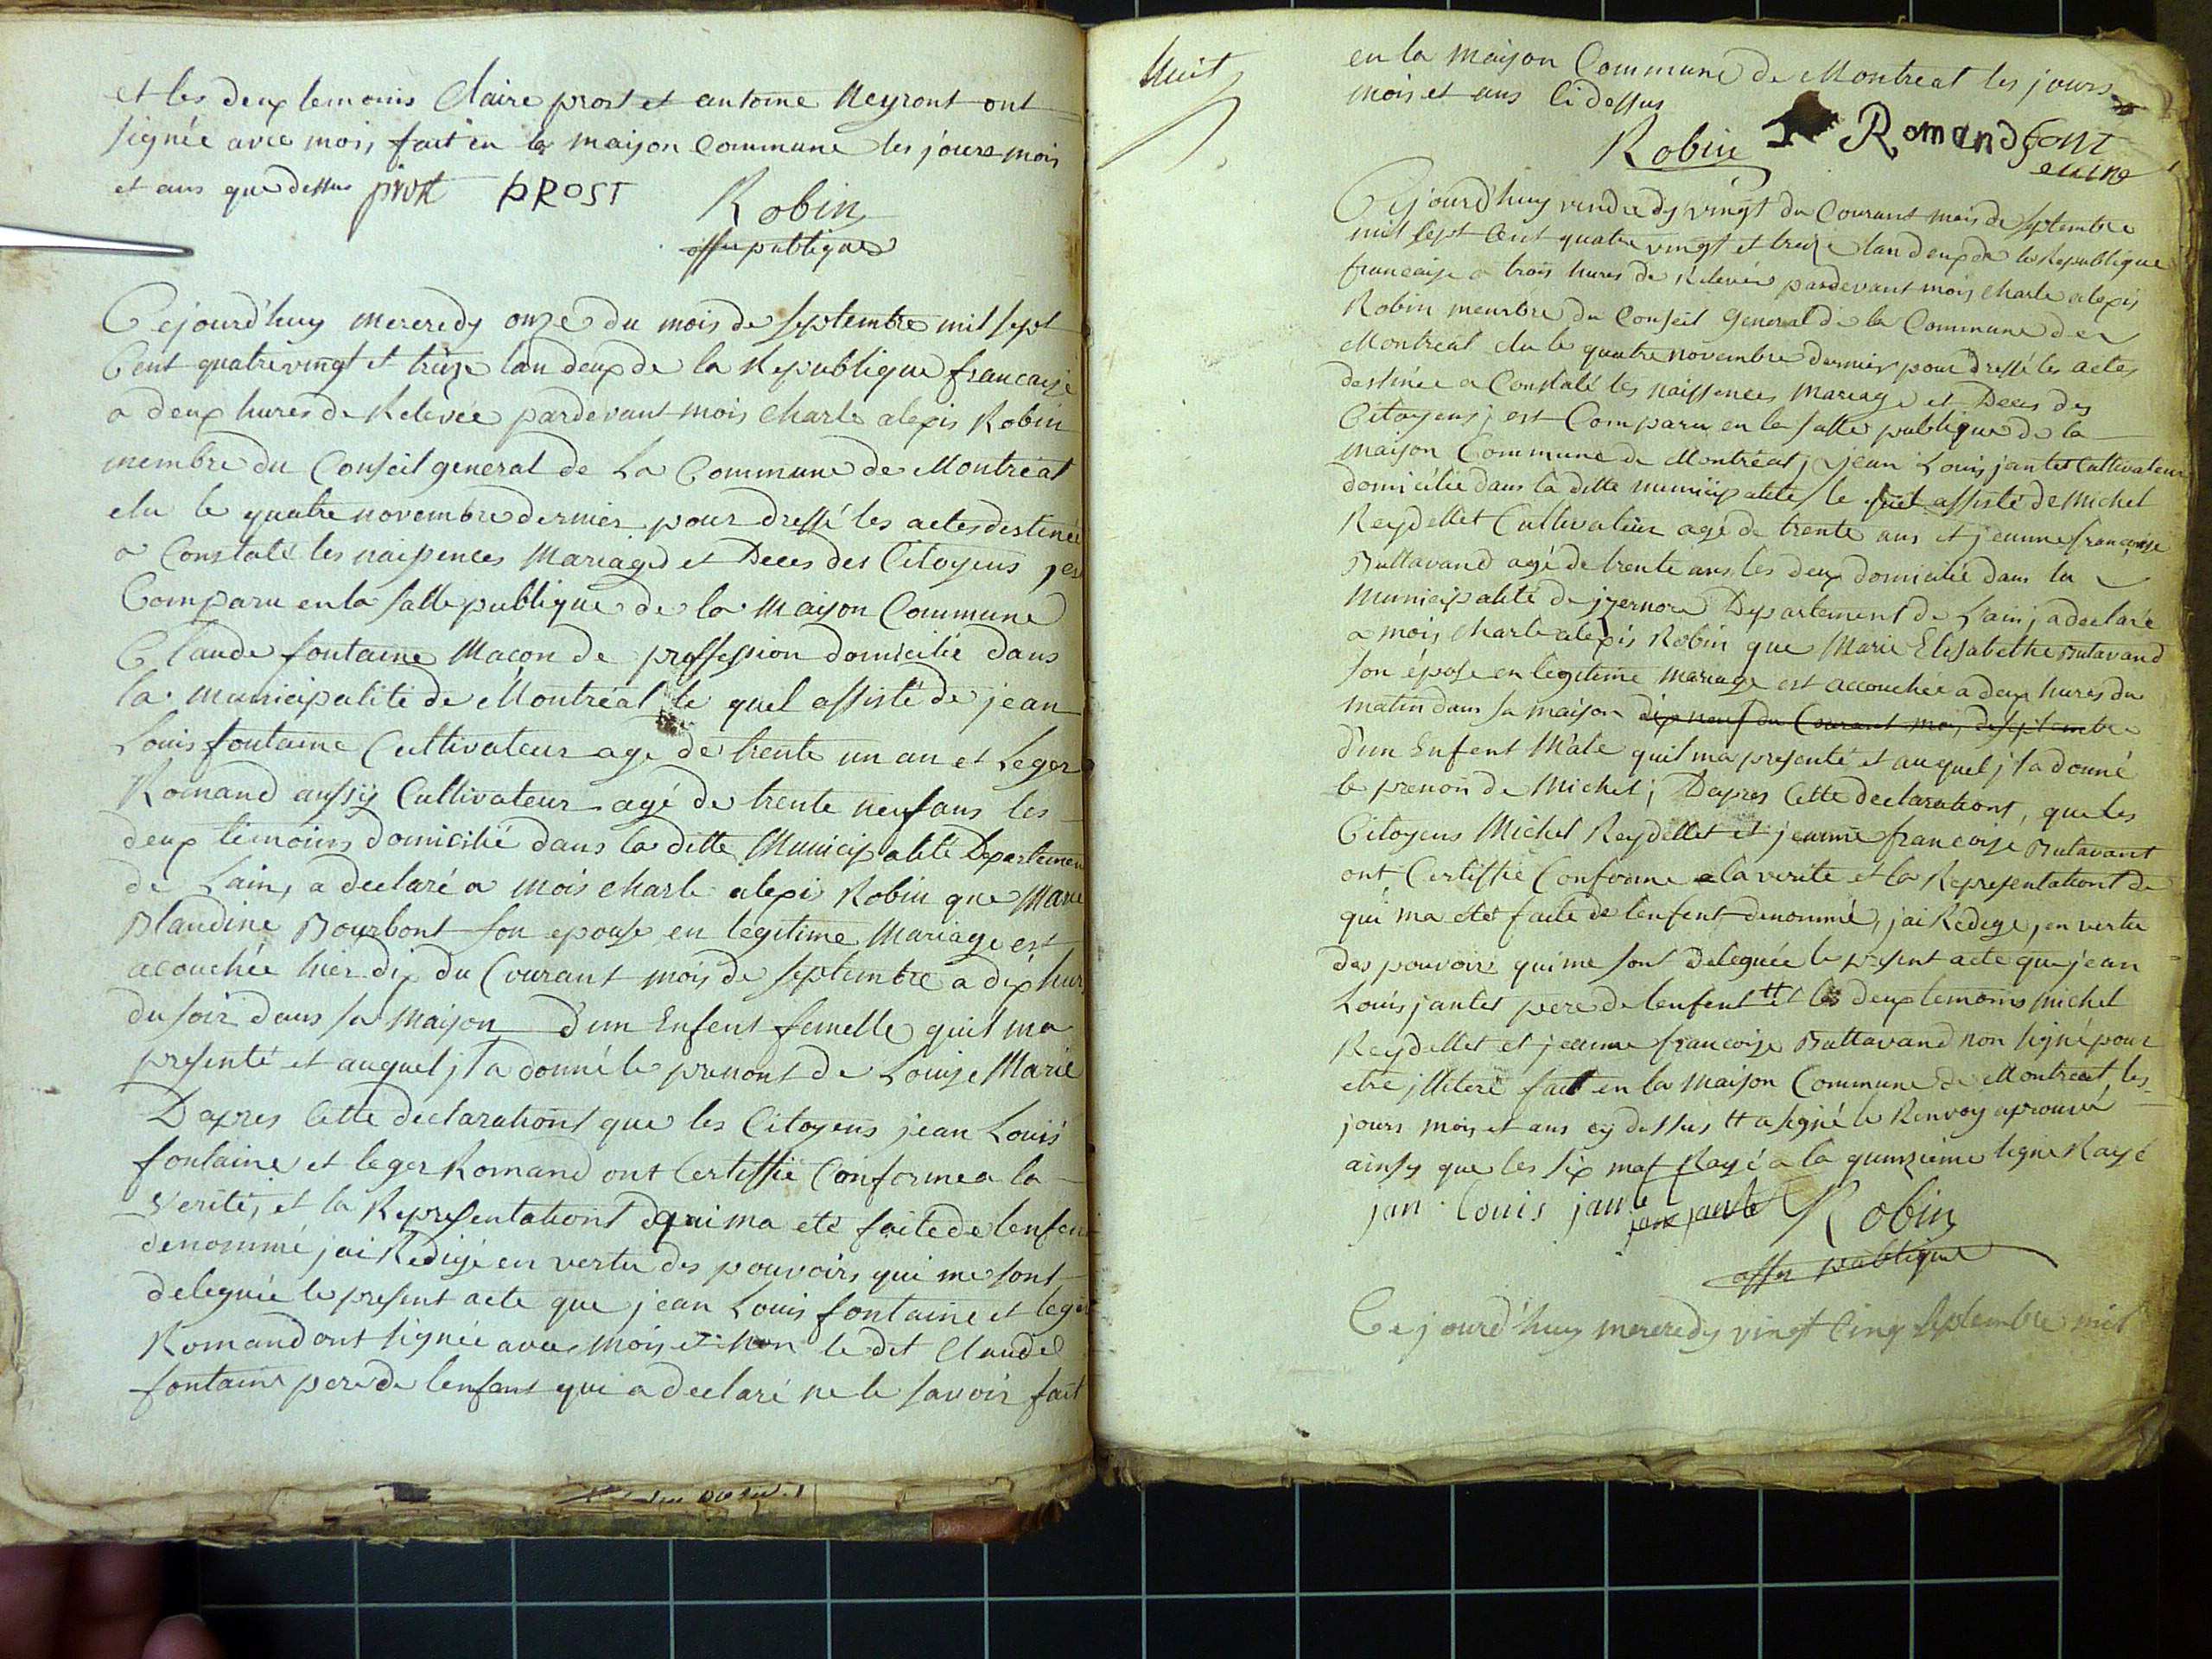 et les deux temoins Claire prost et antoine Neyront ont
signée avec mois, fait en la maison Commune les jours mois
et ans que dessus prost PROST
Robin
offer publique
Cejourd'huy mercredy onze du mois de septembre mil sept
Cent quatrevingt et treize lan deux de la Republique francaise
a deux hures de Relevée pardevant mois Charle alexis Robin
membre du Conseil general de La Commune de Montréal
elu le quatre novembre dernier pour dressé les actes destinée
a Constaté les naissences Mariage et Deces des Citoyens, est
Comparu en la salle publique de la Maison Commune
Claude fontaine Maçon de proffession domicilié dans
la municipalité de Montréal le quel assisté de jean
Louis fontaine Cultivateur agé de trente un an et Leger
Romand aussy Cultivateur agé de trente neuf ans les
deux temoins domicilié dans la ditte Municipalité Departement
de Lain, a declaré a mois Charle alexis Robin que Marie
Blandine Bourbont son epouse en legitime Mariage est
acouchée hier dix du Courant mois de septembre a dix hures
du soir dans sa Maison D'un Enfent femelle quil ma
presenté et auquel jl a donné le prenont de Louise Marie
D'apres Cette declarationt que les Citoyens jean Louis
fontaine et leger Romand ont Certiffié Conforme a la
verité, et la Representationt qui ma eté faite de lenfent
denommé jai Redigé en vertu des pouvoirs qui me sont
deleguée le present acte que jean Louis fontaine et leger
Romand ont signée avec mois et non le dit Claude
fontaine pere de lenfent qui a declaré ne le savoir fait
huit
en la maison Commune de Montreal les jours
mois et ans Ci dessus
Robin Romand font
eine
Cejourd'huy vendredy vingt du Courant mois de septembre
mil sept Cent quatre vingt et treize lan deux de la Republique
francaise a trois hures de Relevée pardevant mois Charle alexis
Robin membre du Conseil General de la Commune de
Montreal elu le quatre novembre dernier pour dressé les actes
destinée a Constaté les naissences Mariage et Deces des
Citoyens, est Comparu en la salle publique de la
maison Commune de Montréal, jean Louis jantet Cultivateur
domicilié dans la ditte municipalité, le quel assisté de Michel
Reydellet Cultivateur agé de trente ans et jeanne francoise
Buttavand agé de trente ans les deux domicilié dans la
Municipalité de jzernore Departement de Lain, a declaré
a mois Charle alexis Robin que Marie Elisabethe Butavand
son épose en legitime mariage est accouchée a deux hures du
matin dans sa maison dix neuf du Courant mois de septembre
d'un Enfent Male quil ma presenté et auquel jl a donné
le prenon de Michel; D'apres Cette declarationt, que les
Citoyens Michel Reydellet et jeanne francoise Butavant
ont Certiffié Conforme a la verité et la Representationt de
qui ma eté faite de lenfent denommé, jai Redigé, en vertu
des pouvoirs qui me sont deleguée le present acte que jean
Louis jantet pere de lenfent # et les deux temoins michel
Reydellet et jeanne francoise Buttavand non signé pour
etre jlliteré fait en la Maison Commune de Montreal, les
jours mois et ans cy dessus # a signé le Renvoy aprouvé
ainsy que les six mot Rayé a la quinzieme ligne Rayé
jan louis jante
Robin
offer publique
Cejourd'huy mercredy vingt Cinq septembre mil